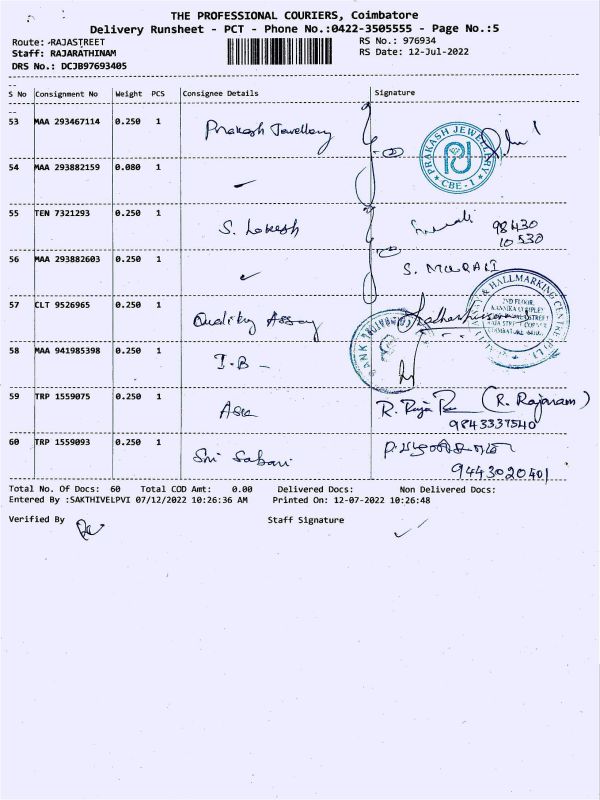 THE PROFESSIONAL COURIERS, Coimbatore
Delivery Runsheet - PCT - Phone No.:0422-3505555 - Page No.:5
Route: RAJASTREET
RS No.: 976934
Staff: RAJARATHINAM
RS Date: 12-Jul-2022
DRS No.: DCJB97693405
S No Consignment No Weight PCS Consignee Details Signature
53 MAA 293467114 0.250 1 Prakash Jewellery
PRAKASH JEWELLERY
CBE - 1
54 MAA 293882159 0.080 1 ✓
55 TEN 7321293 0.250 1 S. Lokesh 98430
10530
56 MAA 293882603 0.250 1 ✓ S. MURALI
& HALLMARKING CENTRE
2ND FLOOR
57 CLT 9526965 0.250 1 Quality Assay
BANK
58 MAA 941985398 0.250 1 I.B -
59 TRP 1559075 0.250 1 R. Raja (R. Rajaram)
9843337540
60 TRP 1559093 0.250 1 Sri Sabari
9443020401
Total No. Of Docs: 60 Total COD Amt: 0.00 Delivered Docs: Non Delivered Docs:
Entered By :SAKTHIVELPVI 07/12/2022 10:26:36 AM Printed On: 12-07-2022 10:26:48
Verified By Staff Signature